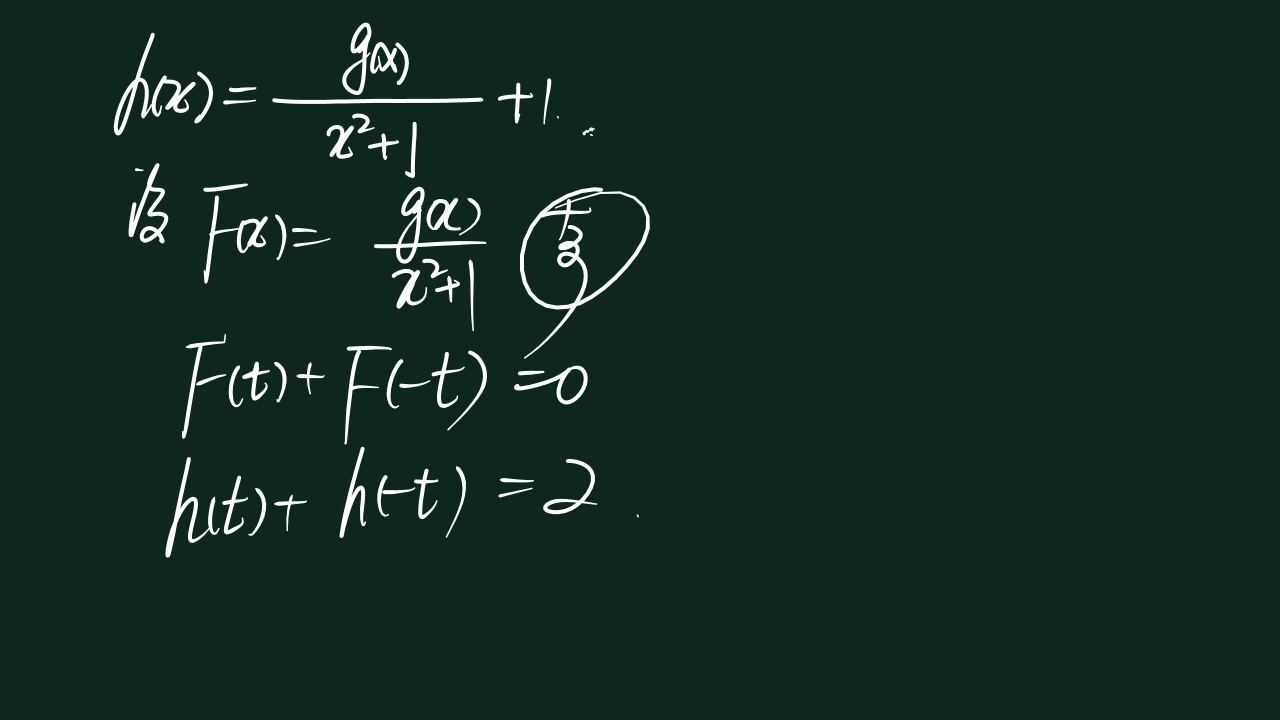 h(x) = g(x)/(x²+1) + 1
设 F(x) = g(x)/(x²+1) 奇
F(t) + F(-t) = 0
h(t) + h(-t) = 2